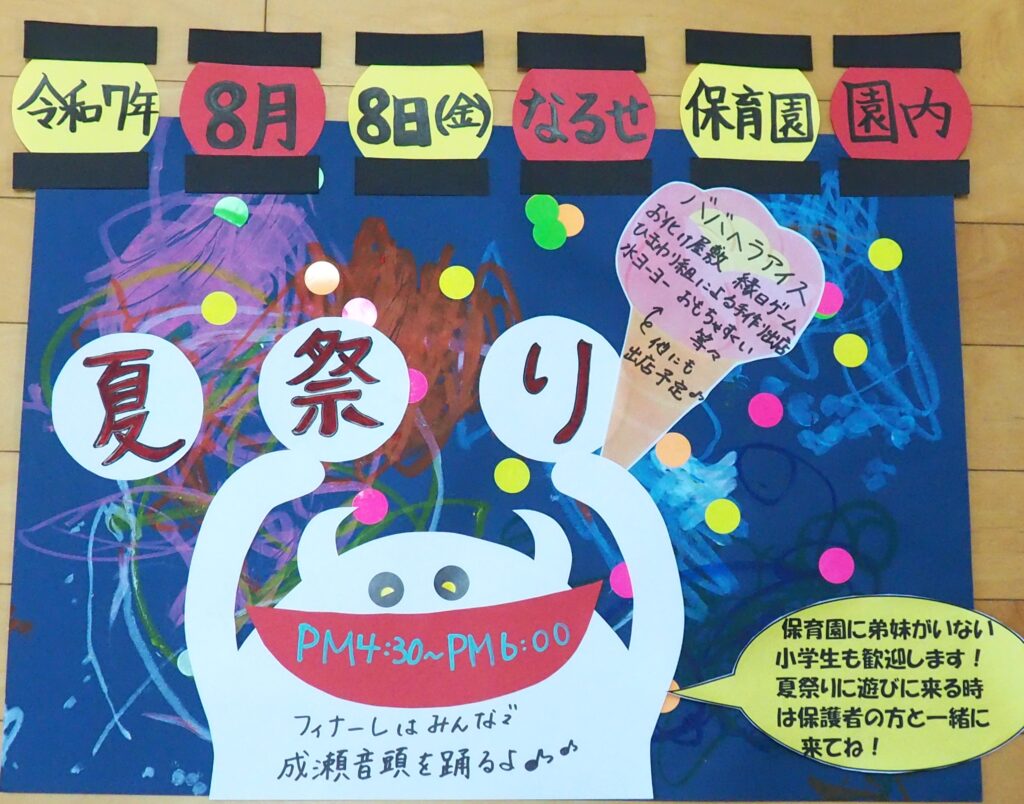 令和7年 8月 8日(金) なるせ 保育園 園内
ババヘラアイス
お化け屋敷 縁日ゲーム
ひまわり組による手作り出店
水ヨーヨー おもちゃすくい
等々
他にも
出店予定♪
夏祭り
PM4:30~PM6:00
フィナーレはみんなで
成瀬音頭を踊るよ♪♪
保育園に弟妹がいない
小学生も歓迎します!
夏祭りに遊びに来る時
は保護者の方と一緒に
来てね!